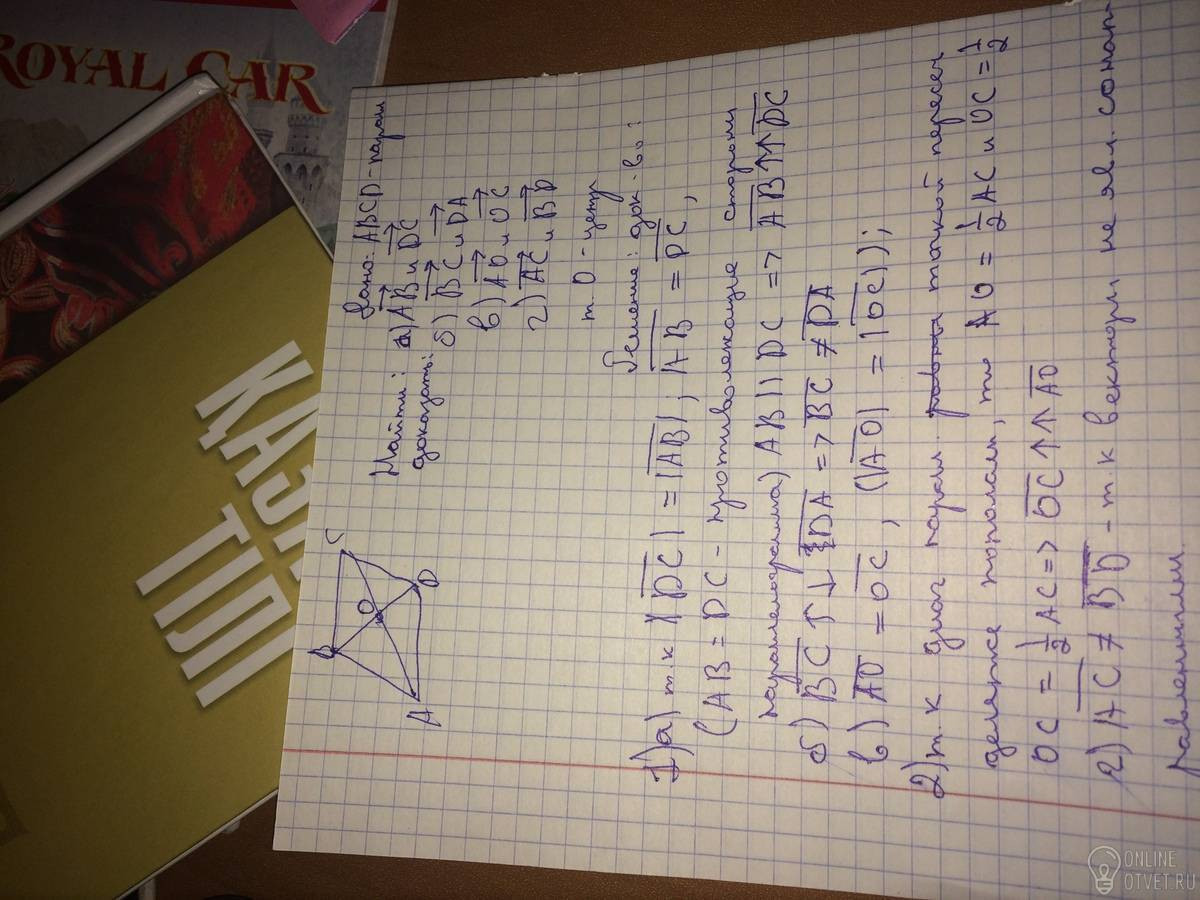 ROYAL CAR
ҚАЗ
ТІЛІ
B
C
O
A
D
Дано: ABCD - парал
Найти: а) AB и DC
доказать: б) BC и DA
в) AO и OC
г) AC и BD
т O - центр
Решение: док-во:
1) а) т.к |DC| = |AB|; AB = DC,
(AB = DC - противолежащие стороны
параллелограмма) AB || DC => AB ↑↑ DC
б) BC ↑↓ DA => BC ≠ DA
в) AO = OC, (|AO| = |OC|);
2) т.к диаг парал. точкой пересеч
делятся пополам, то AO = 1/2 AC и OC = 1/2
OC = 1/2 AC => OC ↑↑ AO
2) AC ≠ BD - т.к векторы не явл. сонап-
равленными
ONLINE
OTVET.RU